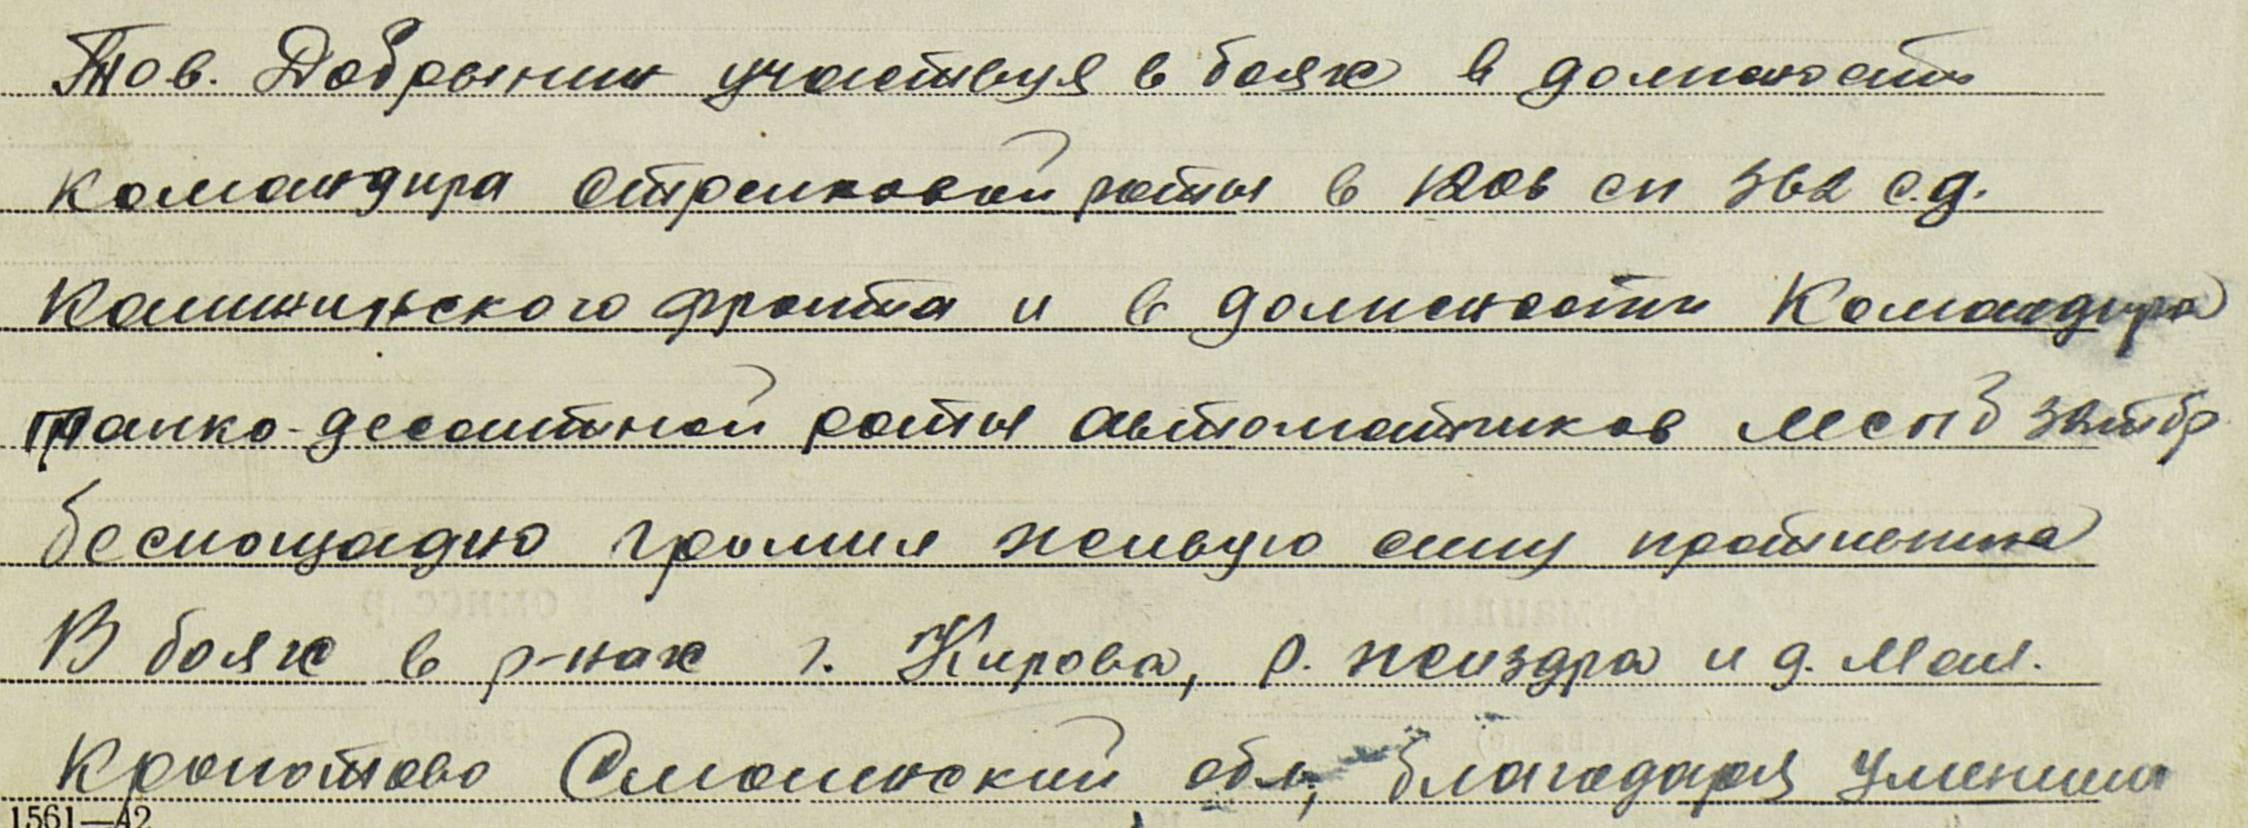 Тов. Добрынин участвуя в боях в должности
командира стрелковой роты в 1206 сп 362 с.д.
Калининского фронта и в должности Командира
танко-десантной роты автоматчиков мспб
беспощадно громил живую силу противника
В боях в р-нах г. Кирова, р. Жиздра и д. Мал.
Кропотово Смоленский обл, благодаря умения
1561—А2